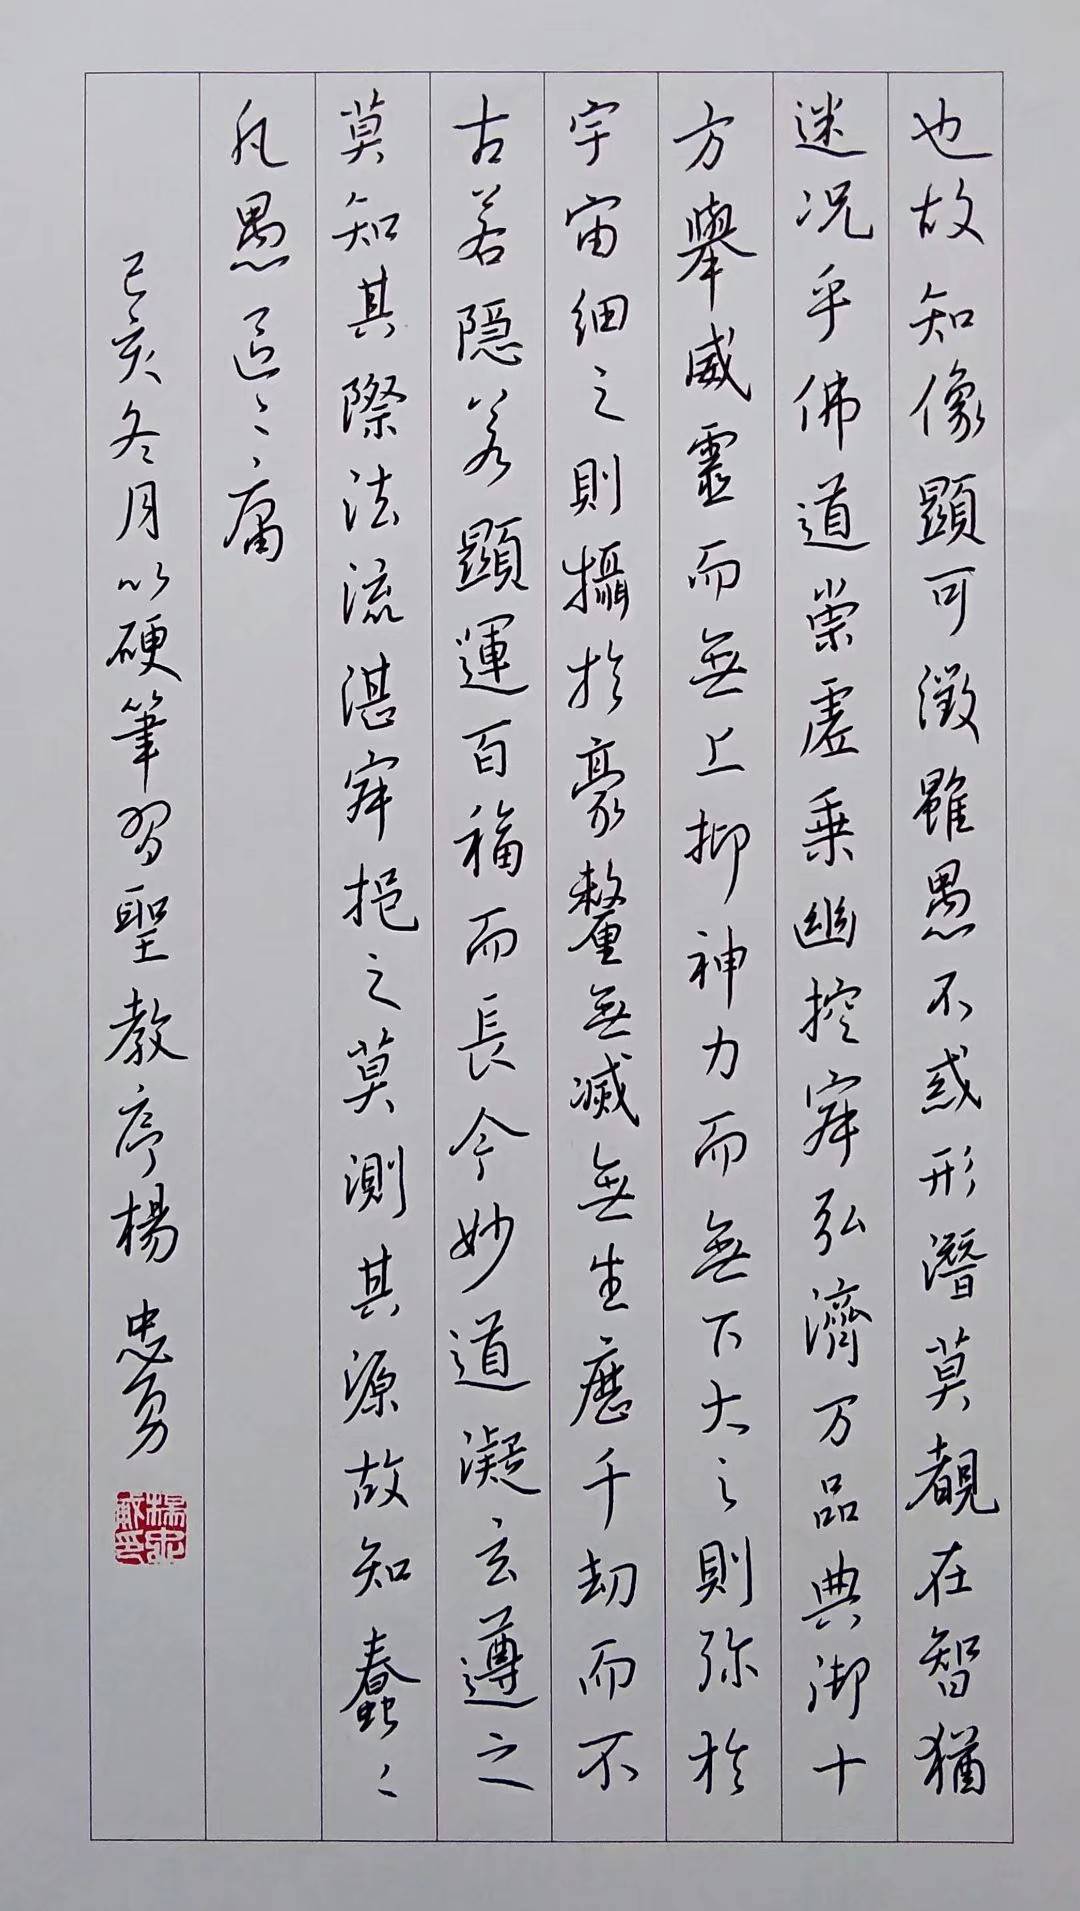 也故知像顯可徵雖愚不惑形潛莫覩在智猶
迷况乎佛道崇虛乗幽控寂弘濟万品典御十
方舉威靈而無上抑神力而無下大之則弥於
宇宙細之則攝於豪釐無滅無生歷千劫而不
古若隱若顯運百福而長今妙道凝玄遵之
莫知其際法流湛寂挹之莫測其源故知蠢〻
凡愚區〻庸
己亥冬月以硬筆習聖教序楊忠勇